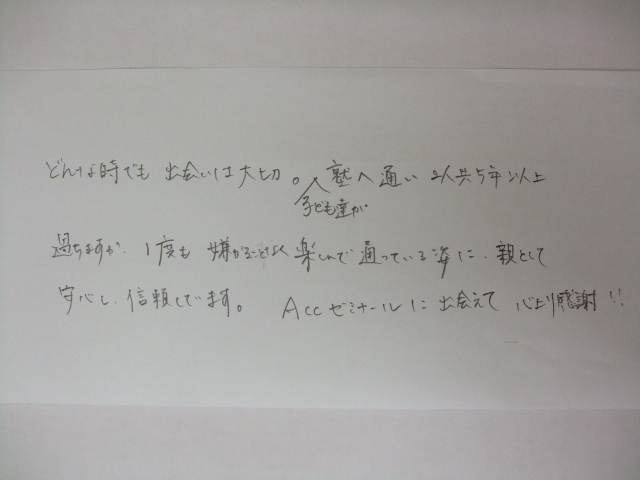 どんな時でも 出会いは大切。子ども達が 塾へ通い 2人共5年以上
過ちますが、1度も 嫌がることなく 楽しんで通っている姿に、親として
安心し、信頼しています。 Accゼミナールに 出会えて 心より感謝!!